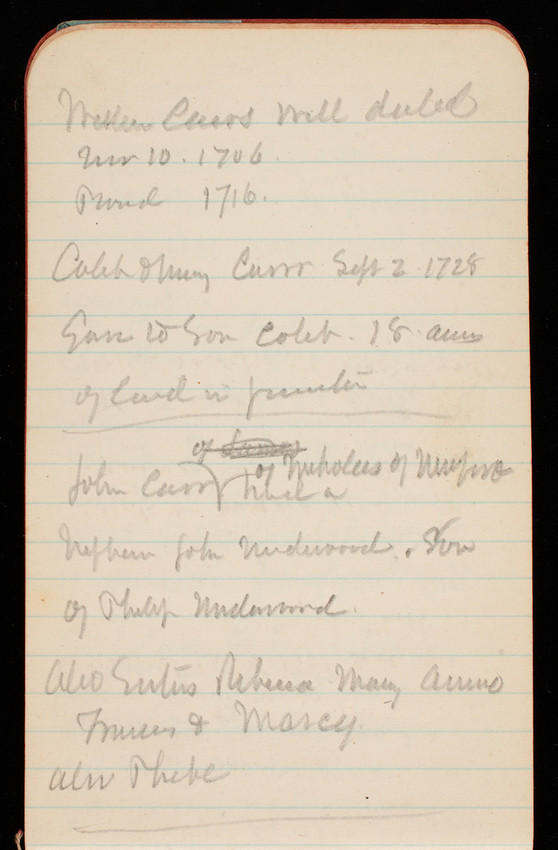 Will dated
Nov 10. 1706.
Proved 1716.
Caleb & Mary Carr Sept 2 1728
Gave to Son Caleb. 18 acres
of land in
of James
John Carr of Nicholas of Newport
had a
Nephew John Underwood. Son
of Philip Underwood.
Also Sisters Rebecca Mary
Frances & Marcy
also Phebe